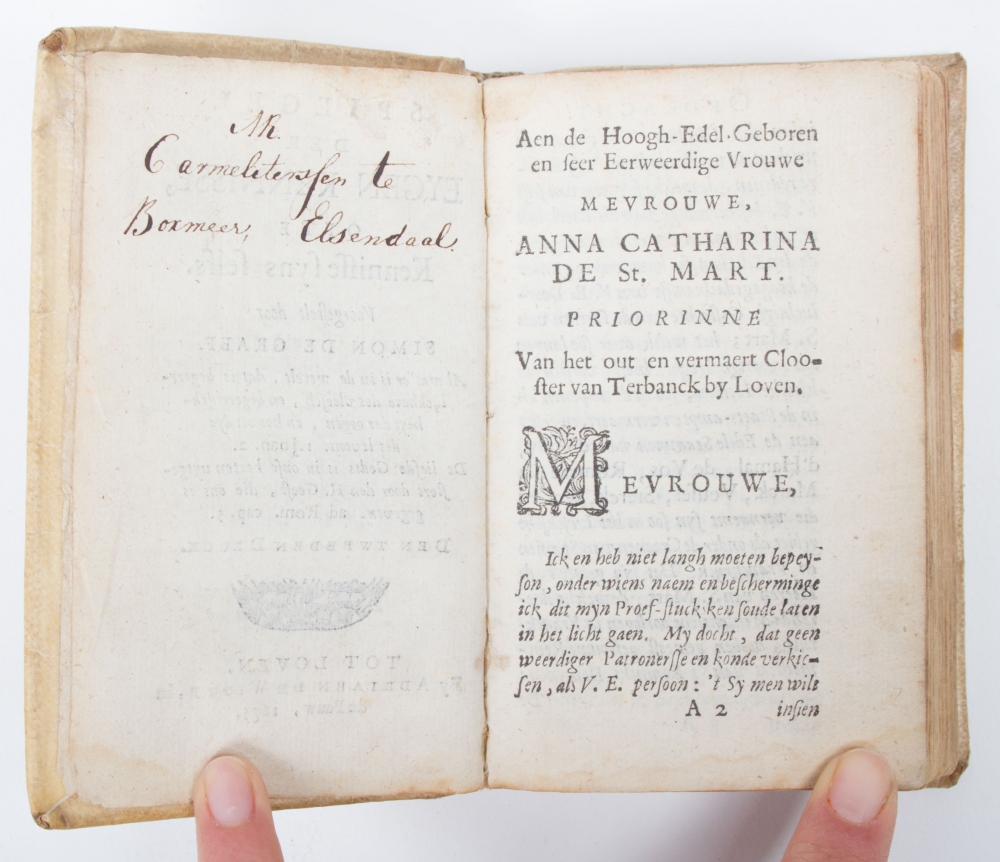 Carmeliterssen te
Boxmeer, Elsendaal.
Aen de Hoogh-Edel-Geboren
en seer Eerweerdige Vrouwe
MEVROUWE,
ANNA CATHARINA
DE St. MART.
PRIORINNE
Van het out en vermaert Cloo-
ster van Terbanck by Loven.
MEVROUWE,
Ick en heb niet langh moeten bepey-
son, onder wiens naem en bescherminge
ick dit myn Proef-stuck ken soude laten
in het licht gaen. My docht, dat geen
weerdiger Patronersse en konde verkie-
sen, als V. E. persoon: 't Sy men wilt
A 2 insien